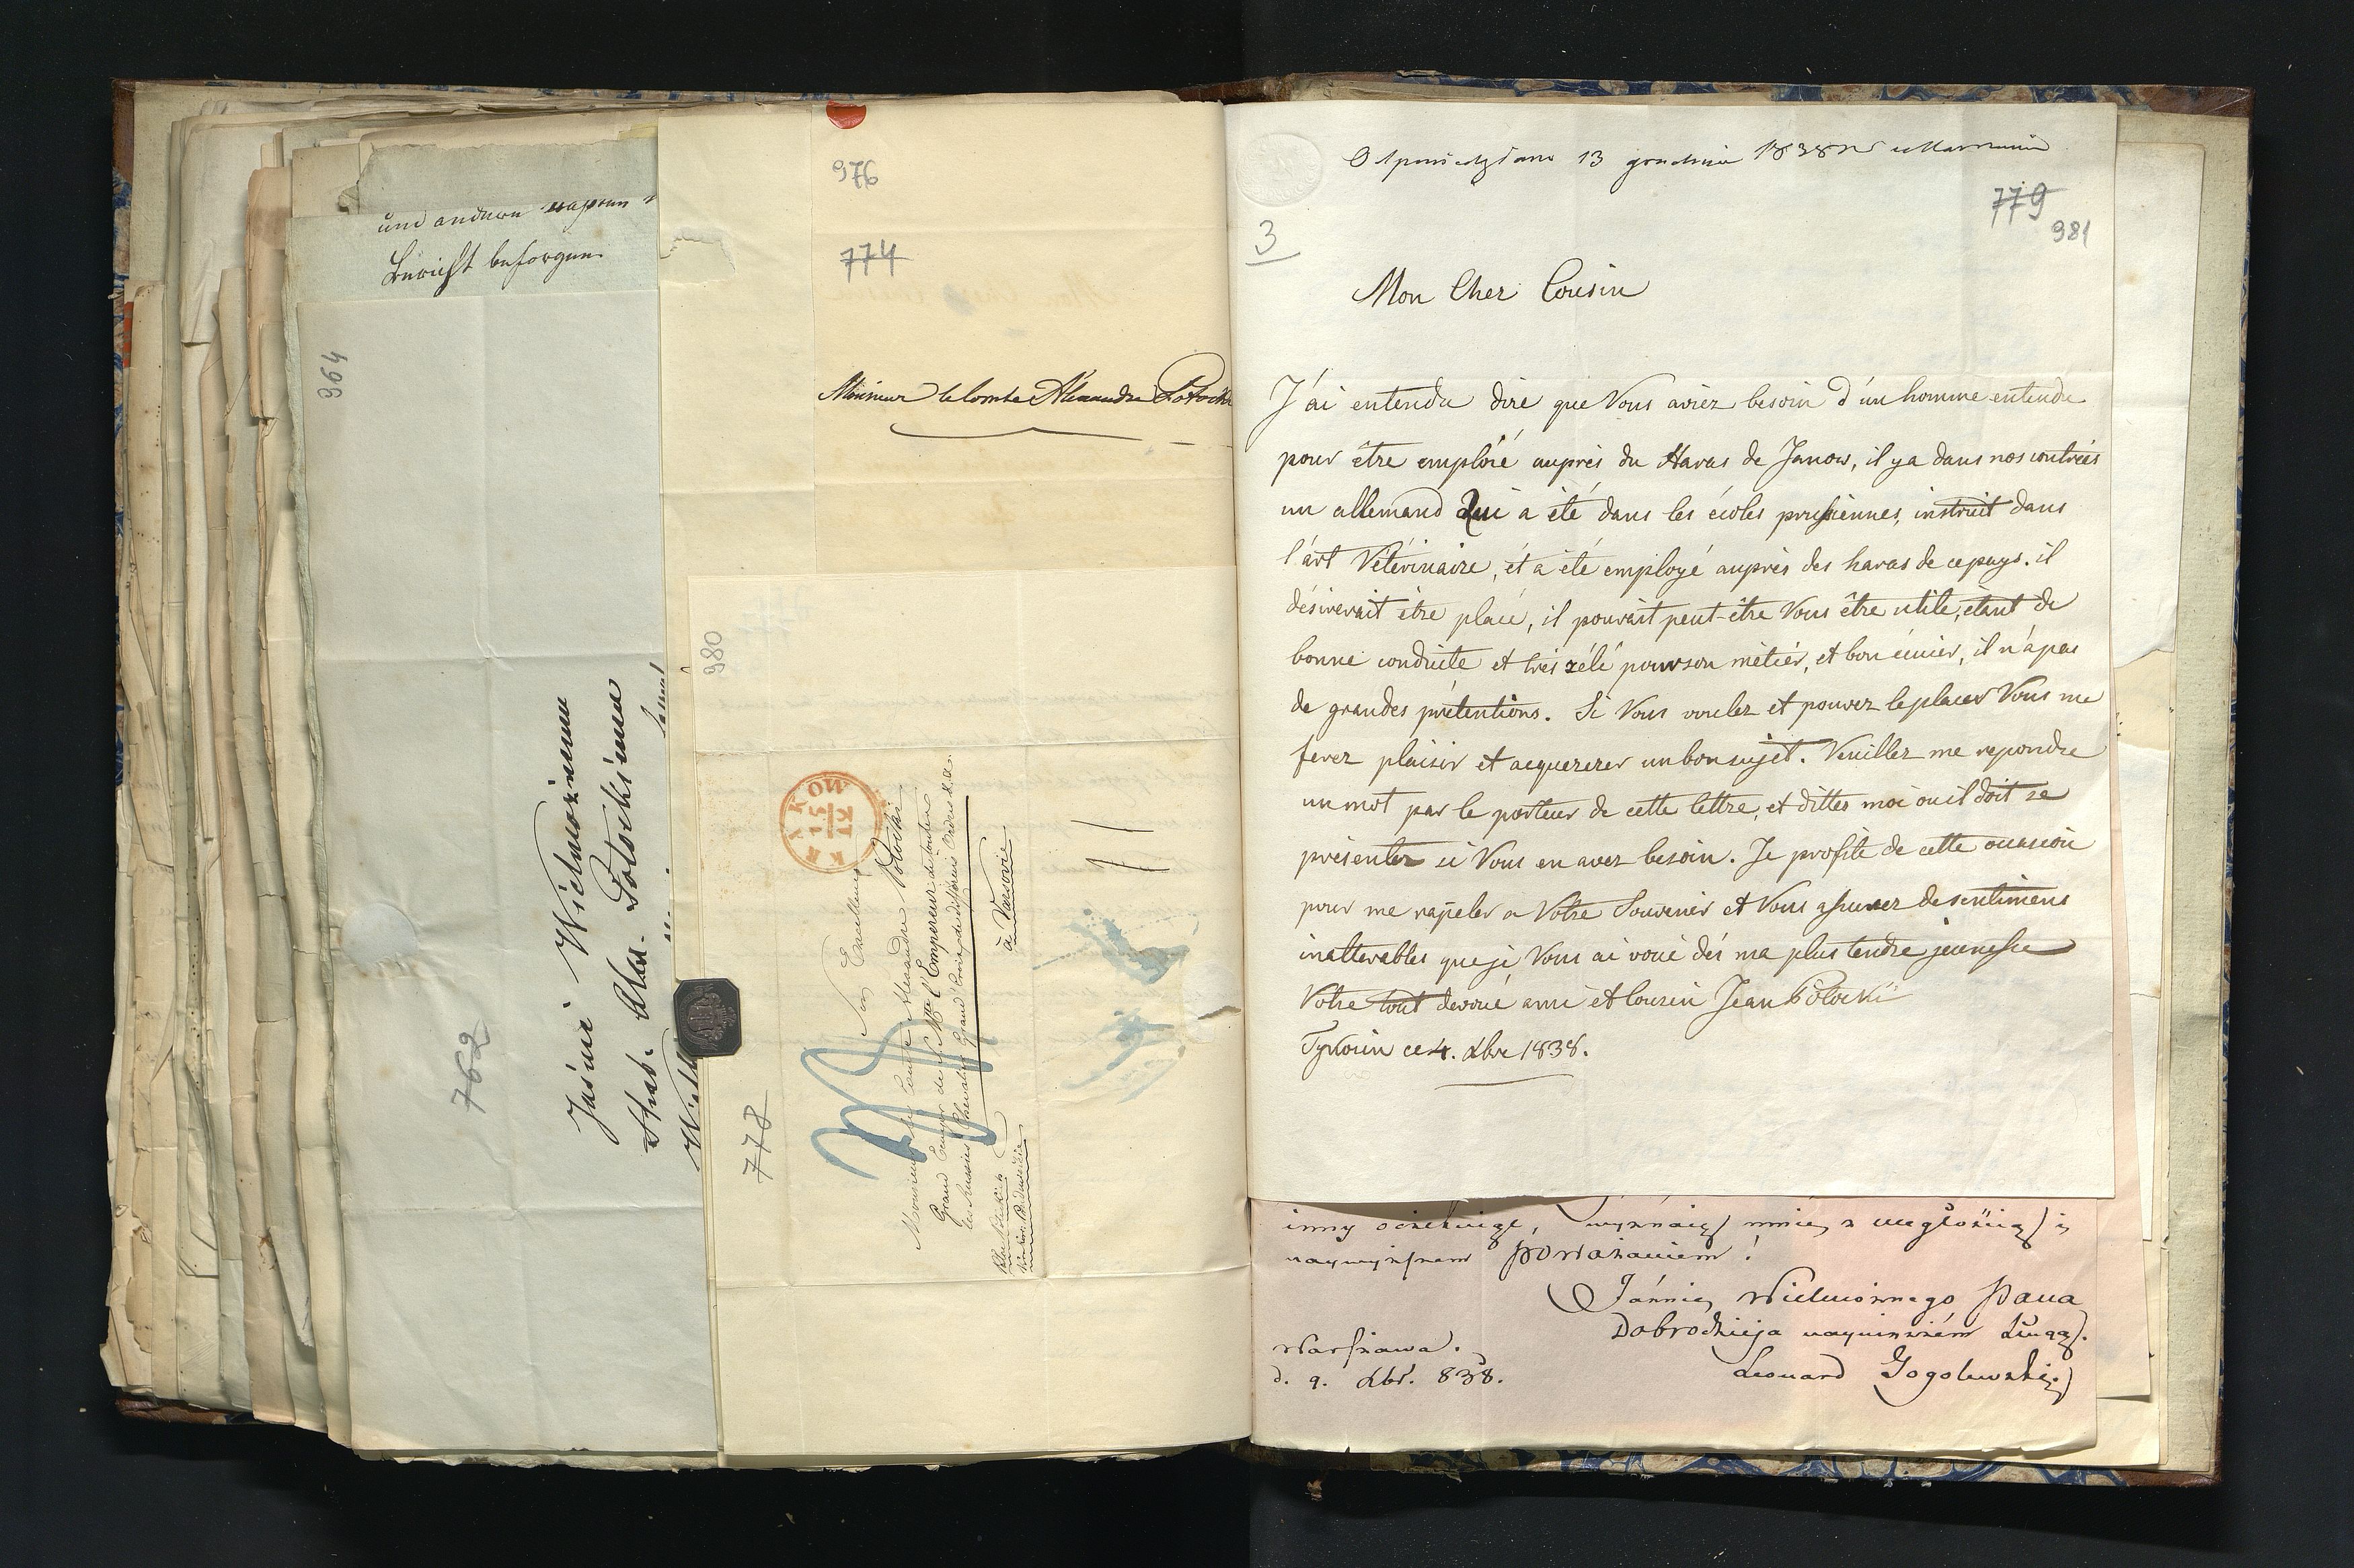 und andern
Bericht besorgen.
964
762
Jaśnie Wielmożnemu
Hrab. Alex. Potockiemu
976
774
Monsieur le Comte Alexandre Potocki
980
778
KRAKOW
15
12
Son Excellence
Monsieur le Comte Alexandre Potocki
Grand Ecuyer de S. M. l'Empereur de toutes
les Russies Chevalier Grand Croix de différens Ordres &.&.
à Varsovie
3
Odpowiedziano 13 grudnia 1838 r
779
981
Mon Cher Cousin
J'ai entendu dire que Vous aviez besoin d'un homme entendu
pour être emploié auprès du Haras de Janow, il y a dans nos contrées
un allemand Qui a été dans les écoles prussiennes, instruit dans
l'art Vétérinaire, et a été employé auprès des haras de ce pays. il
désirerait être placé, il pourait peut-être Vous être utile, étant de
bonne conduite et très zélé pour son métier, et bon écuier, il n'a pas
de grandes prétentions. Si Vous voulez et pouvez le placer Vous me
ferez plaisir et acquererer un bon sujet. Veuillez me repondre
un mot par le porteur de cette lettre, et dittes moi ou il doit se
présenter si Vous en avez besoin. Je profite de cette occasion
pour me rapeler a Votre Souvenir et Vous assurer de sentimens
inatterables que je Vous ai voué dés ma plus tendre jeunesse
Votre tout devoué ami et Cousin Jean Potocki
Tykocin ce 4. Xbre 1838.
powazaniem!
Jaśnie Wielmożnego Pana
Dobrodzieja nayniższém Sługą.
Warszawa.
d. 9. Xbr. 838.
Leonard Gogolewski